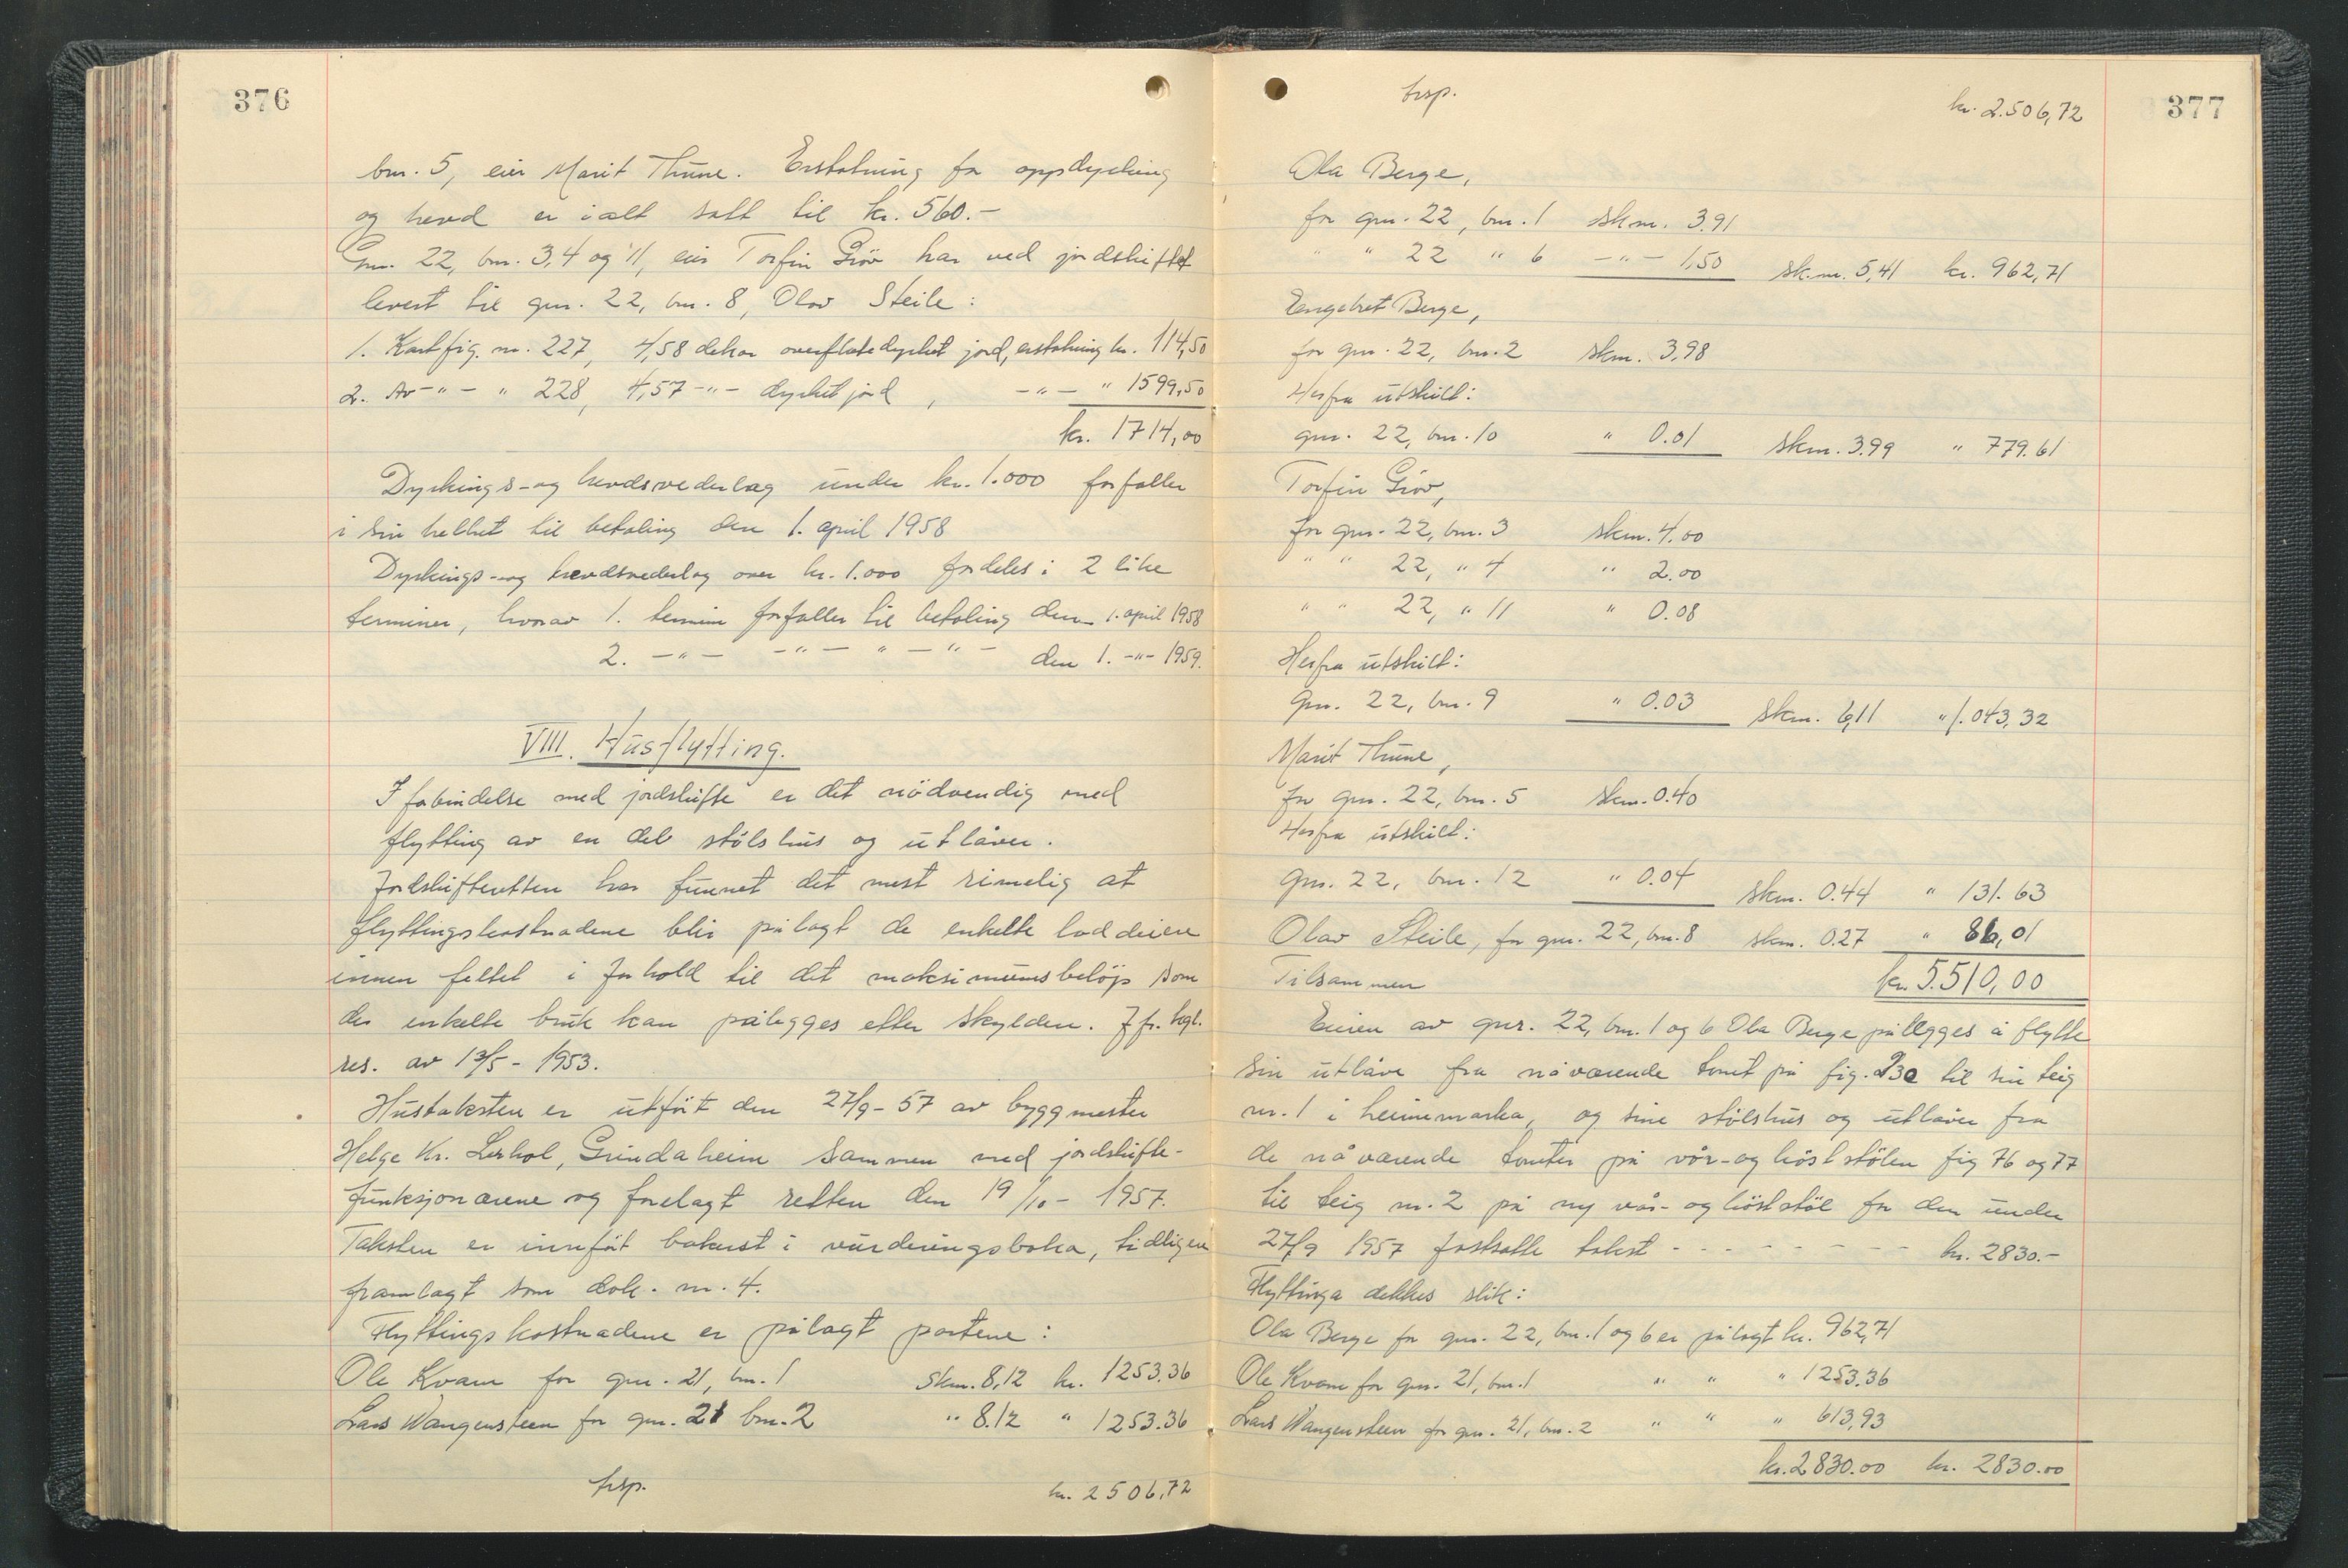 376
bnr. 5, eier Marit Thune. Erstatning for oppdyrking
og hevd er i alt satt til kr. 560.-
Gnr. 22, bnr. 3,4 og 11, eier Torfin Gröv har ved jordskiftet
levert til gnr. 22, bnr. 8, Olav Steile:
1. Kartfig. nr. 227, 4,58 dekar overflatedyrket jord, erstatning kr. 114,50
2. Av -"- " 228, 4,57 -"- dyrket jord, -"- " 1599,50
kr. 1714,00
Dyrkings- og hevdsvederlag under kr. 1.000 forfaller
i sin helhet til betaling den 1. april 1958
Dyrkings- og hevdsvederlag over kr. 1.000 fordeles i 2 like
terminer, hvorav 1. termin forfaller til betaling den 1. april 1958
2. -"- -"- " -"- den 1. -"- 1959.
VIII. Husflytting.
I forbindelse med jordskifte er det nödvendig med
flytting av en del stölshus og utlåver.
Jordskifteretten har funnet det mest rimelig at
flyttingskostnadene blir pålagt de enkelte loddeiere
innen feltet i forhold til det maksimumsbelöp som
de enkelte bruk kan pålegges etter skylden. Jfr. kgl.
res. av 13/5 - 1953.
Hustaksten er utfört den 27/9 - 57 av byggmester
Helge Kr. Lerhol, Grindaheim sammen med jordskifte-
funksjonærene og forelagt retten den 19/10 - 1957.
Taksten er innfört bakerst i vurderingsboka, tidligere
framlagt som dok. nr. 4.
Flyttingskostnadene er pålagt partene:
Ole Kvam for gnr. 21, bnr. 1 skm. 8,12 kr. 1253.36
Lars Wangensteen for gnr. 21 bnr. 2 " 8.12 " 1253.36
trsp. kr. 2506,72
377
trsp. kr. 2.506,72
Ola Berge,
for gnr. 22, bnr. 1 skm. 3.91
" " 22 " 6 -"- 1,50 sk.m. 5,41 kr. 962,71
Engebret Berge,
for gnr. 22, bnr. 2 skm. 3,98
Herfra utskilt:
gnr. 22, bnr. 10 " 0.01 skm. 3.99 " 779.61
Torfin Gröv,
for gnr. 22, bnr. 3 skm. 4.00
" " 22, " 4 " 2.00
" " 22, " 11 " 0.08
Herfra utskilt:
gnr. 22, bnr. 9 " 0.03 skm. 6,11 " 1.043,32
Marit Thune,
for gnr. 22, bnr. 5 skm. 0.40
Herfra utskilt:
gnr. 22, bnr. 12 " 0.04 skm. 0.44 " 131.63
Olav Steile, for gnr. 22, bnr. 8 skm. 0.27 " 86,01
Tilsammen kr. 5.510,00
Eieren av gnr. 22, bnr. 1 og 6 Ola Berge pålegges å flytte
sin utlåve fra nåværende tomt på fig. 230 til sin teig
nr. 1 i heimemarka, og sine stölshus og utlåver fra
de nåværende tomter på vår- og höststölen fig 76 og 77
til teig nr. 2 på ny vår- og höststöl for den under
27/9 1957 fastsatte takst - - - - - - - - kr. 2830.-
Flyttinga dekkes slik:
Ola Berge for gnr. 22, bnr. 1 og 6 er pålagt kr. 962,71
Ole Kvam for gnr. 21, bnr. 1 " " " 1253.36
Lars Wangensteen for gnr. 21, bnr. 2 " " " 613,93
kr. 2830.00 kr. 2830.00